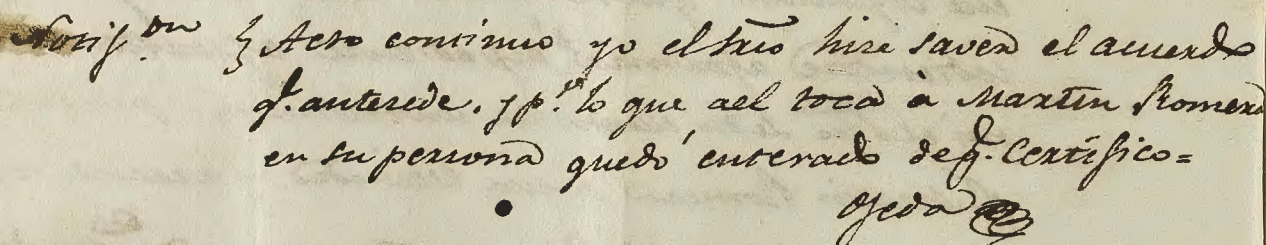 Notif.on } Acto continuo yo el srio hise saver el acuerdo
q.e antesede, y p.r lo que ael toca à Martin Romero
en su persona quedó enterado de q.e Certifico=
Ojeda